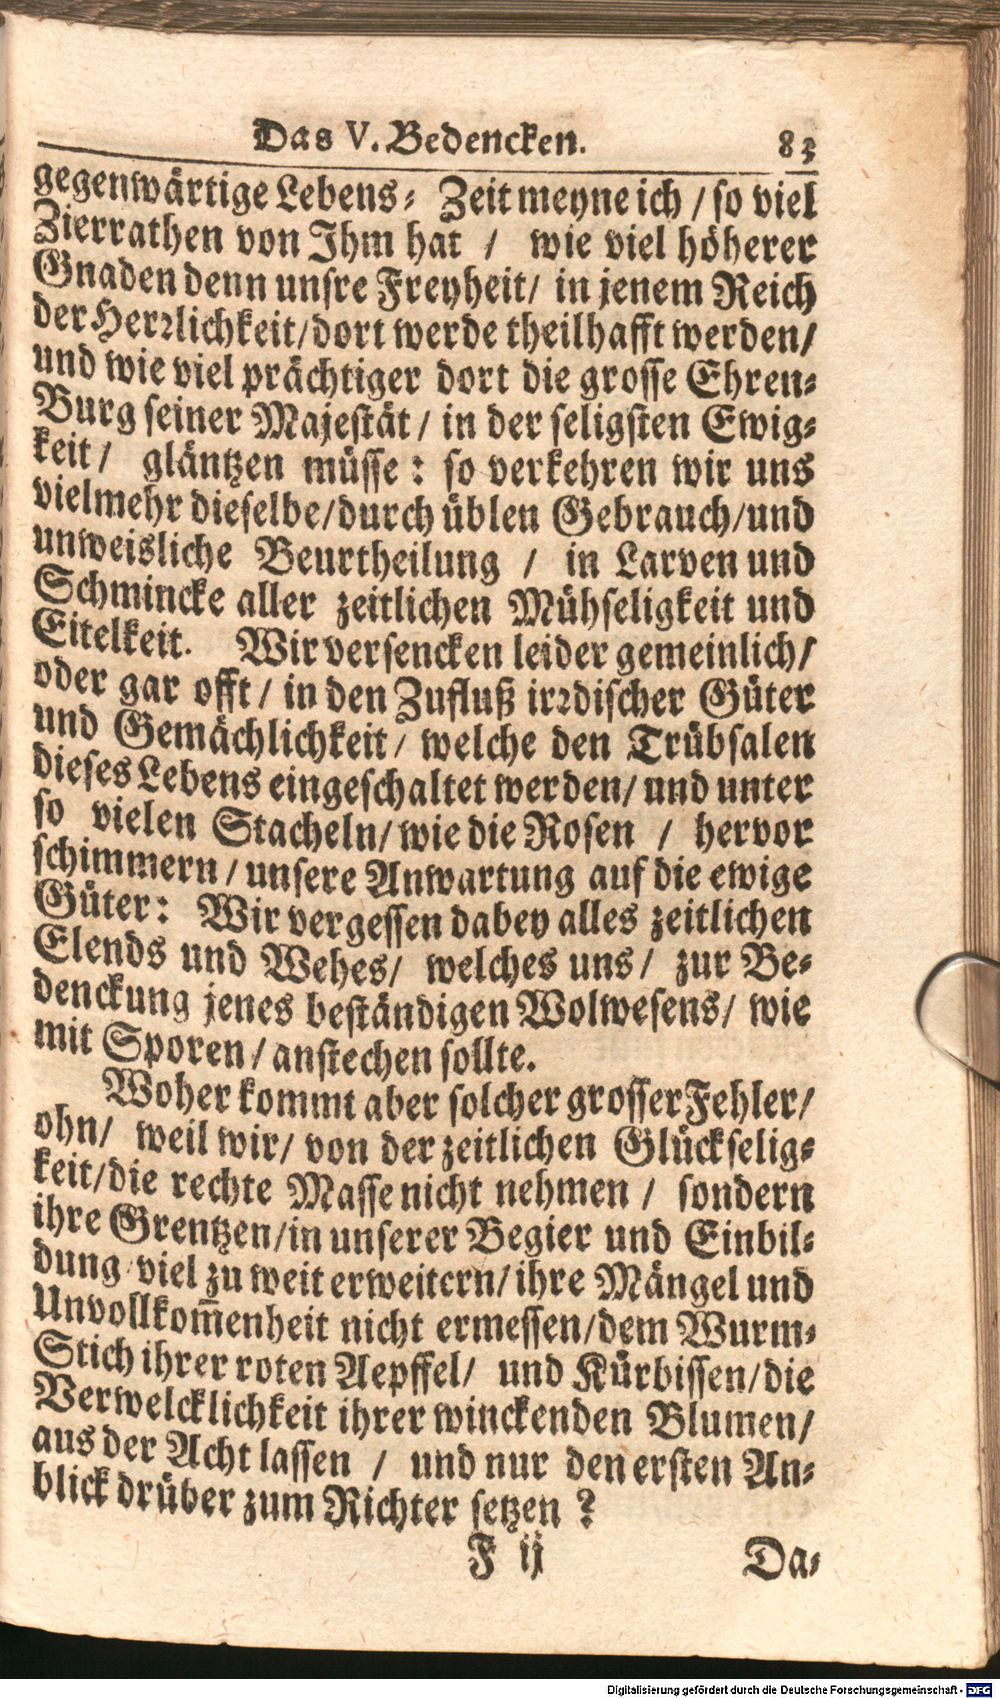 Das V. Bedencken. 83
gegenwärtige Lebens-Zeit meyne ich / so viel
Zierrathen von Ihm hat / wie viel höherer
Gnaden denn unsre Freyheit / in jenem Reich
der Herrlichkeit / dort werde theilhafft werden /
und wie viel prächtiger dort die grosse Ehren-
Burg seiner Majestät / in der seligsten Ewig-
keit / gläntzen müsse : so verkehren wir uns
vielmehr dieselbe / durch üblen Gebrauch / und
unweisliche Beurtheilung / in Larven und
Schmincke aller zeitlichen Mühseligkeit und
Eitelkeit. Wir versencken leider gemeinlich /
oder gar offt / in den Zufluß irrdischer Güter
und Gemächlichkeit / welche den Trübsalen
dieses Lebens eingeschaltet werden / und unter
so vielen Stacheln / wie die Rosen / hervor
schimmern / unsere Anwartung auf die ewige
Güter: Wir vergessen dabey alles zeitlichen
Elends und Wehes / welches uns / zur Be-
denckung jenes beständigen Wolwesens / wie
mit Sporen / anstechen sollte.
Woher kommt aber solcher grosser Fehler /
ohn / weil wir / von der zeitlichen Glückselig-
keit / die rechte Masse nicht nehmen / sondern
ihre Grentzen / in unserer Begier und Einbil-
dung / viel zu weit erweitern / ihre Mängel und
Unvollkom̅enheit nicht ermessen / dem Wurm-
Stich ihrer roten Aepffel / und Kürbissen / die
Verwelcklichkeit ihrer winckenden Blumen /
aus der Acht lassen / und nur den ersten An-
blick drüber zum Richter setzen ?
F ij Da-
Digitalisierung gefördert durch die Deutsche Forschungsgemeinschaft - DFG